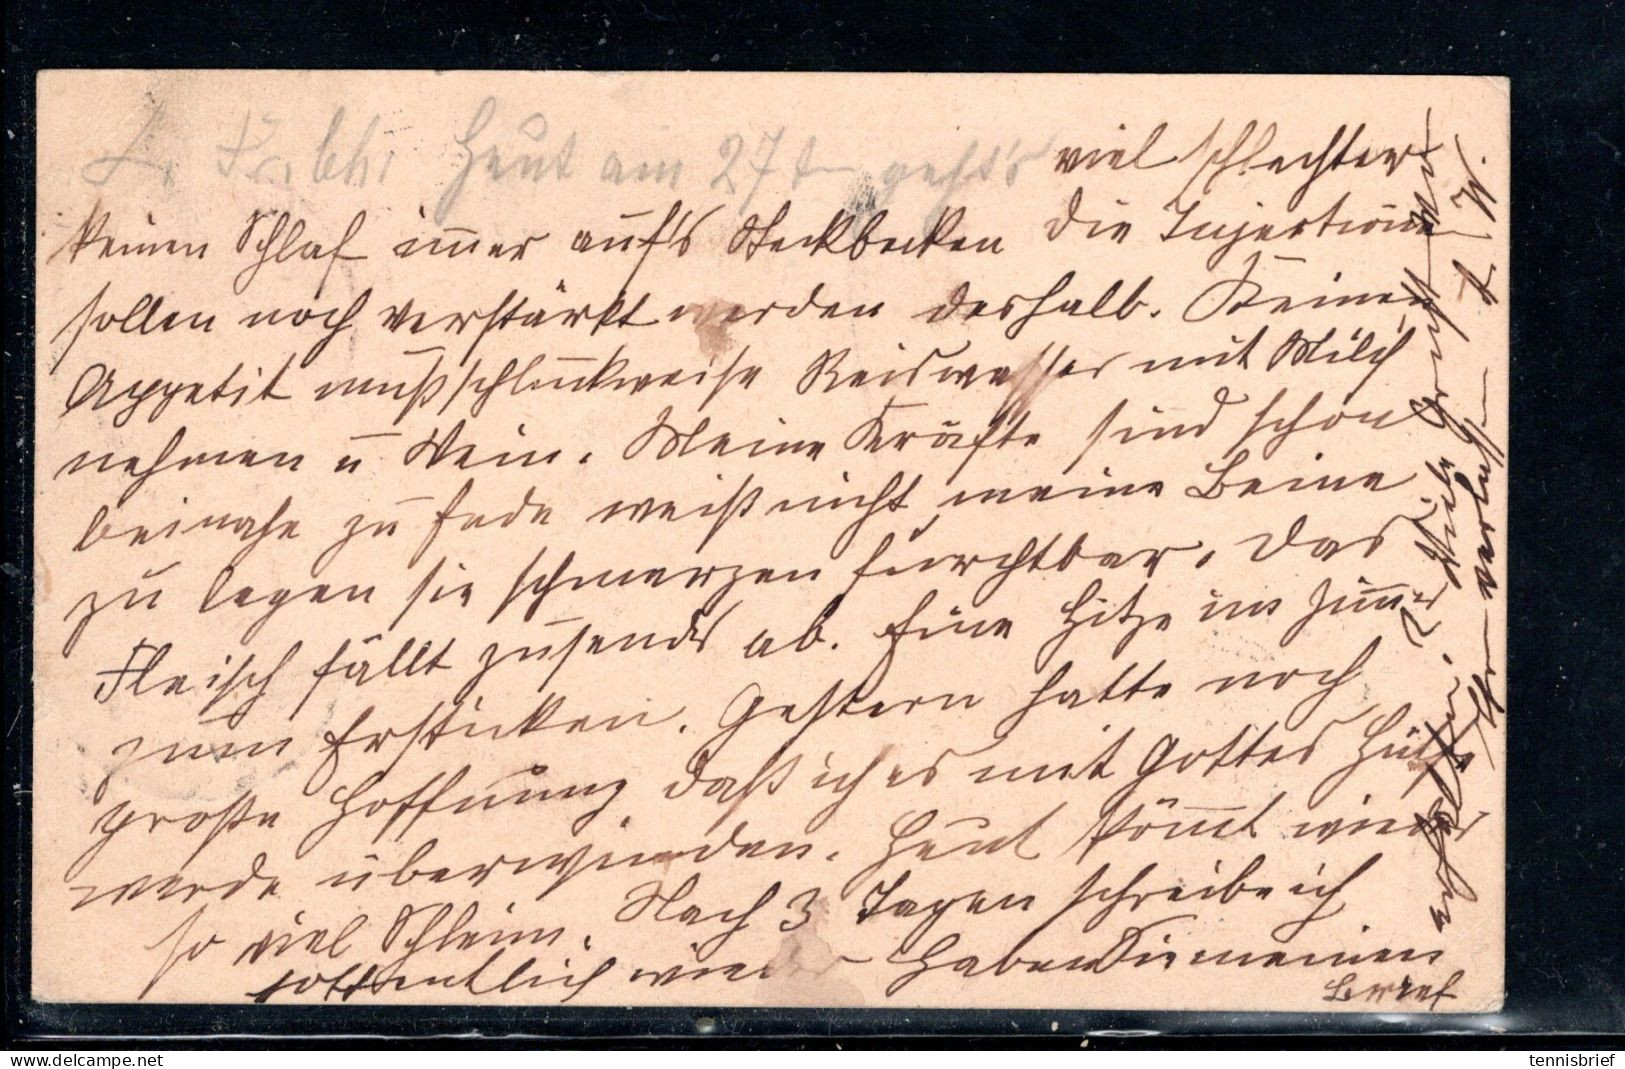 L. Heut am 27ten geht's viel schlechter
keinen Schlaf im̄er auf's Steckbecken die Injectionen
sollen noch verstärkt werden deshalb. Keinen
Appetit muß schluckweise Reiswasser mit Milch
nehmen u Wein. Meine Kräfte sind schon
beinahe zu Ende weiß nicht meine Beine
zu legen sie schmerzen furchtbar. Das
Fleisch fällt zusends ab. Eine Hitze im Zim̄er
zum Ersticken. Gestern hatte noch
große Hoffnung daß ich es mit Gottes Hülfe
werde überwinden. Heut kom̄t wieder
so viel Schleim. Nach 3 Tagen schreibe ich
hoffentlich wieder Haben Sie meinen
Brief
erhalten? Viele Grüße
Ihr verlassen
tennisbrief